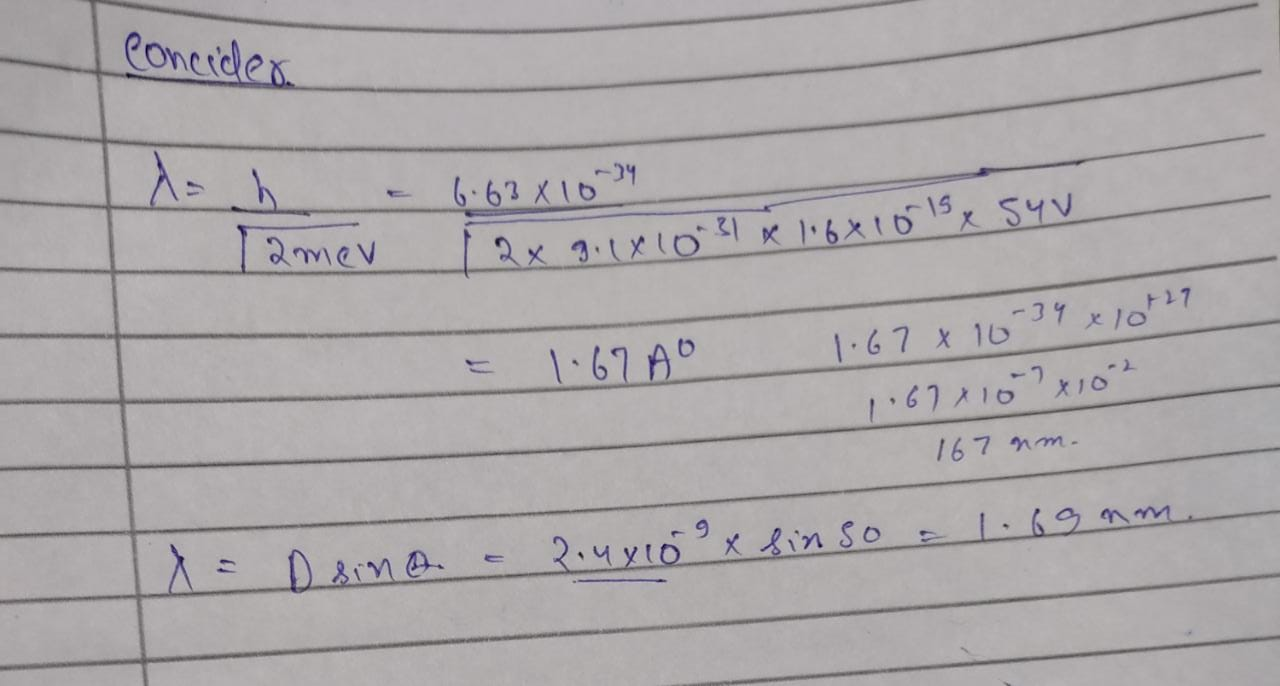 Concider.
λ = h/√2meV = 6.63 × 10⁻³⁴/√2 × 9.1 × 10⁻³¹ × 1.6 × 10⁻¹⁹ × 54V
= 1.67 A⁰ 1.67 × 10⁻³⁴ × 10⁺²⁷
1.67 × 10⁻⁷ × 10⁻²
167 nm.
λ = D sin θ. = 2.4×10⁻⁹ × sin 50 = 1.69 nm.